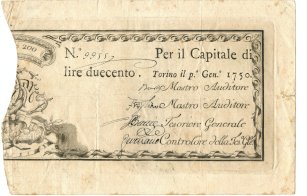 200
N.° 9955 Per il Capitale di
lire duecento. Torino il p.° Gen.° 1750.
Mastro Auditore
Mastro Auditore
Tesoriere Generale
Controlore della